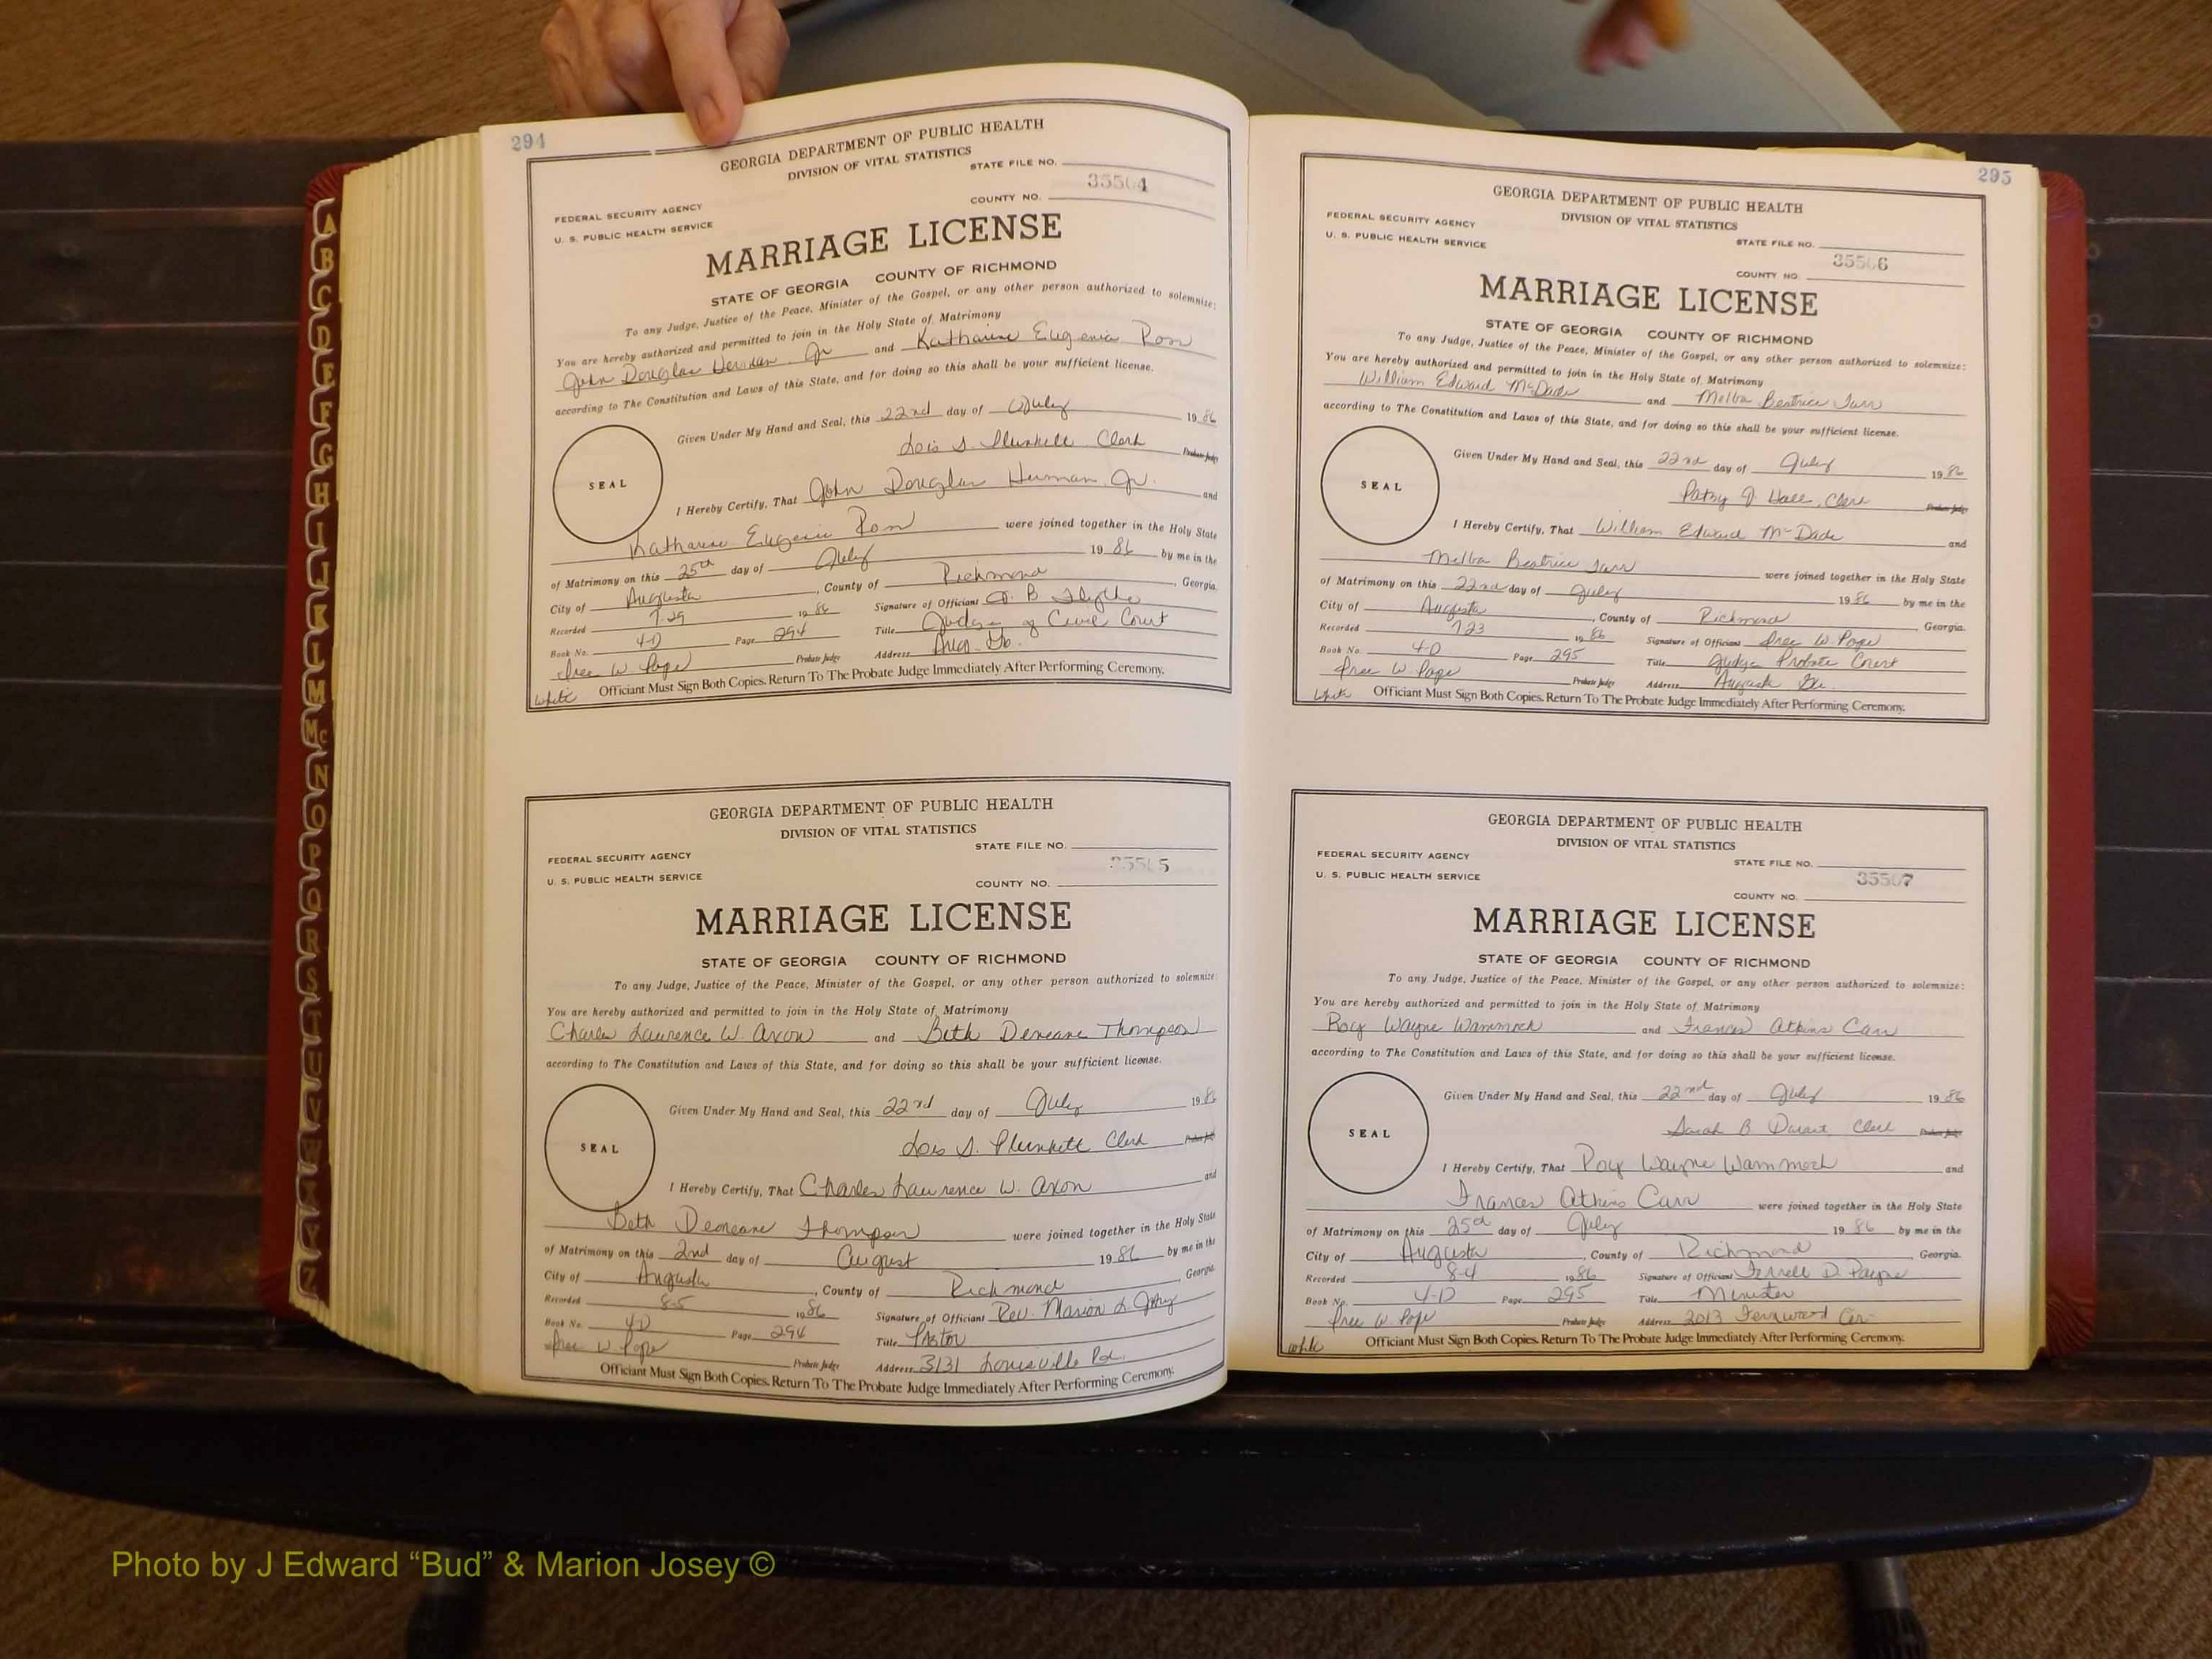 294
GEORGIA DEPARTMENT OF PUBLIC HEALTH
DIVISION OF VITAL STATISTICS
STATE FILE NO.
35504
FEDERAL SECURITY AGENCY
COUNTY NO.
U. S. PUBLIC HEALTH SERVICE
MARRIAGE LICENSE
STATE OF GEORGIA COUNTY OF RICHMOND
To any Judge, Justice of the Peace, Minister of the Gospel, or any other person authorized to solemnize:
You are hereby authorized and permitted to join in the Holy State of Matrimony
John Douglas Jr and Katharine Eugenia
according to The Constitution and Laws of this State, and for doing so this shall be your sufficient license.
Given Under My Hand and Seal, this 22nd day of July 1986
Lois S. Plunkett Clerk Probate Judge
SEAL
I Hereby Certify, That John Douglas Jr. and
Katharine Eugenia were joined together in the Holy State
of Matrimony on this 25th day of July 1986 by me in the
City of Augusta, County of Richmond, Georgia.
Recorded 7-29 1986 Signature of Officiant
Book No. 4-D Page 294 Title Judge of Civil Court
W. Pope Probate Judge Address Aug. Ga.
White Officiant Must Sign Both Copies. Return To The Probate Judge Immediately After Performing Ceremony.
GEORGIA DEPARTMENT OF PUBLIC HEALTH
DIVISION OF VITAL STATISTICS
STATE FILE NO.
35505
FEDERAL SECURITY AGENCY
U. S. PUBLIC HEALTH SERVICE
COUNTY NO.
MARRIAGE LICENSE
STATE OF GEORGIA COUNTY OF RICHMOND
To any Judge, Justice of the Peace, Minister of the Gospel, or any other person authorized to solemnize:
You are hereby authorized and permitted to join in the Holy State of Matrimony
Charles Lawrence W. Axon and Beth Deneane Thompson
according to The Constitution and Laws of this State, and for doing so this shall be your sufficient license.
Given Under My Hand and Seal, this 22nd day of July 1986
Lois S. Plunkett Clerk Probate Judge
SEAL
I Hereby Certify, That Charles Lawrence W. Axon and
Beth Deneane Thompson were joined together in the Holy State
of Matrimony on this 2nd day of August 1986 by me in the
City of Augusta, County of Richmond, Georgia.
Recorded 8-5 1986 Signature of Officiant Rev. Marion L.
Book No. 4D Page 294 Title Pastor
W Pope Probate Judge Address 3131 Louisville Rd.
Officiant Must Sign Both Copies. Return To The Probate Judge Immediately After Performing Ceremony.
295
GEORGIA DEPARTMENT OF PUBLIC HEALTH
DIVISION OF VITAL STATISTICS
FEDERAL SECURITY AGENCY
U. S. PUBLIC HEALTH SERVICE
STATE FILE NO.
35506
COUNTY NO.
MARRIAGE LICENSE
STATE OF GEORGIA COUNTY OF RICHMOND
To any Judge, Justice of the Peace, Minister of the Gospel, or any other person authorized to solemnize:
You are hereby authorized and permitted to join in the Holy State of Matrimony
William Edward McDade and Melba Beatrice Tarr
according to The Constitution and Laws of this State, and for doing so this shall be your sufficient license.
Given Under My Hand and Seal, this 22nd day of July 1986
Patsy J. Hall, Clerk Probate Judge
SEAL
I Hereby Certify, That William Edward McDade and
Melba Beatrice Tarr were joined together in the Holy State
of Matrimony on this 22nd day of July 1986 by me in the
City of Augusta, County of Richmond, Georgia.
Recorded 7-23 1986 Signature of Officiant W. Pope
Book No. 4-D Page 295 Title Judge Probate Court
W. Pope Probate Judge Address Augusta Ga.
White Officiant Must Sign Both Copies. Return To The Probate Judge Immediately After Performing Ceremony.
GEORGIA DEPARTMENT OF PUBLIC HEALTH
DIVISION OF VITAL STATISTICS
FEDERAL SECURITY AGENCY
STATE FILE NO.
U. S. PUBLIC HEALTH SERVICE
35507
COUNTY NO.
MARRIAGE LICENSE
STATE OF GEORGIA COUNTY OF RICHMOND
To any Judge, Justice of the Peace, Minister of the Gospel, or any other person authorized to solemnize:
You are hereby authorized and permitted to join in the Holy State of Matrimony
Roy Wayne Wammock and Frances Atkins Carr
according to The Constitution and Laws of this State, and for doing so this shall be your sufficient license.
Given Under My Hand and Seal, this 22nd day of July 1986
Sarah B. Clerk Probate Judge
SEAL
I Hereby Certify, That Roy Wayne Wammock and
Frances Atkins Carr were joined together in the Holy State
of Matrimony on this 25th day of July 1986 by me in the
City of Augusta, County of Richmond, Georgia.
Recorded 8-4 1986 Signature of Officiant Ferrell D. Payne
Book No. 4-D Page 295 Title Minister
W. Pope Probate Judge Address 2013 Cir
White Officiant Must Sign Both Copies. Return To The Probate Judge Immediately After Performing Ceremony.
A
B
C
D
E
F
G
H
I
J
K
L
M
Mc
N
O
P
Q
R
S
T
U
V
W
X
Y
Z
Photo by J Edward “Bud” & Marion Josey ©